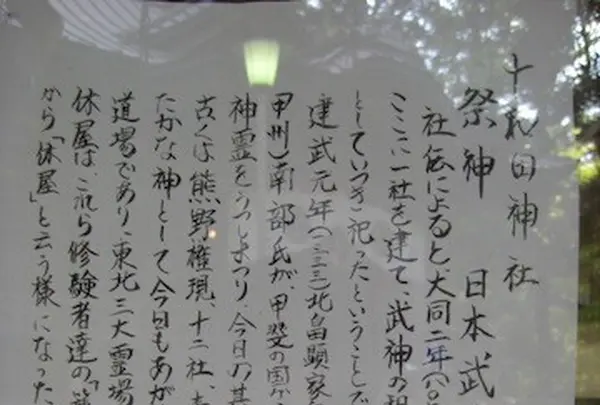 十和田神社
祭神 日本武
社伝によると、大同二年(八〇
ここに一社を建て、武神の祖
としていつき祀ったということで
建武元年(一三三三)北畠顕家
甲州)南部氏が、甲斐の国か
神霊をうつしまつり、今日の基
古くは熊野権現、十二社、
たかな神として、今日もあが
道場であり、東北三大霊場
休屋は、これら修験者達の「
から「休屋」と云う様になった、